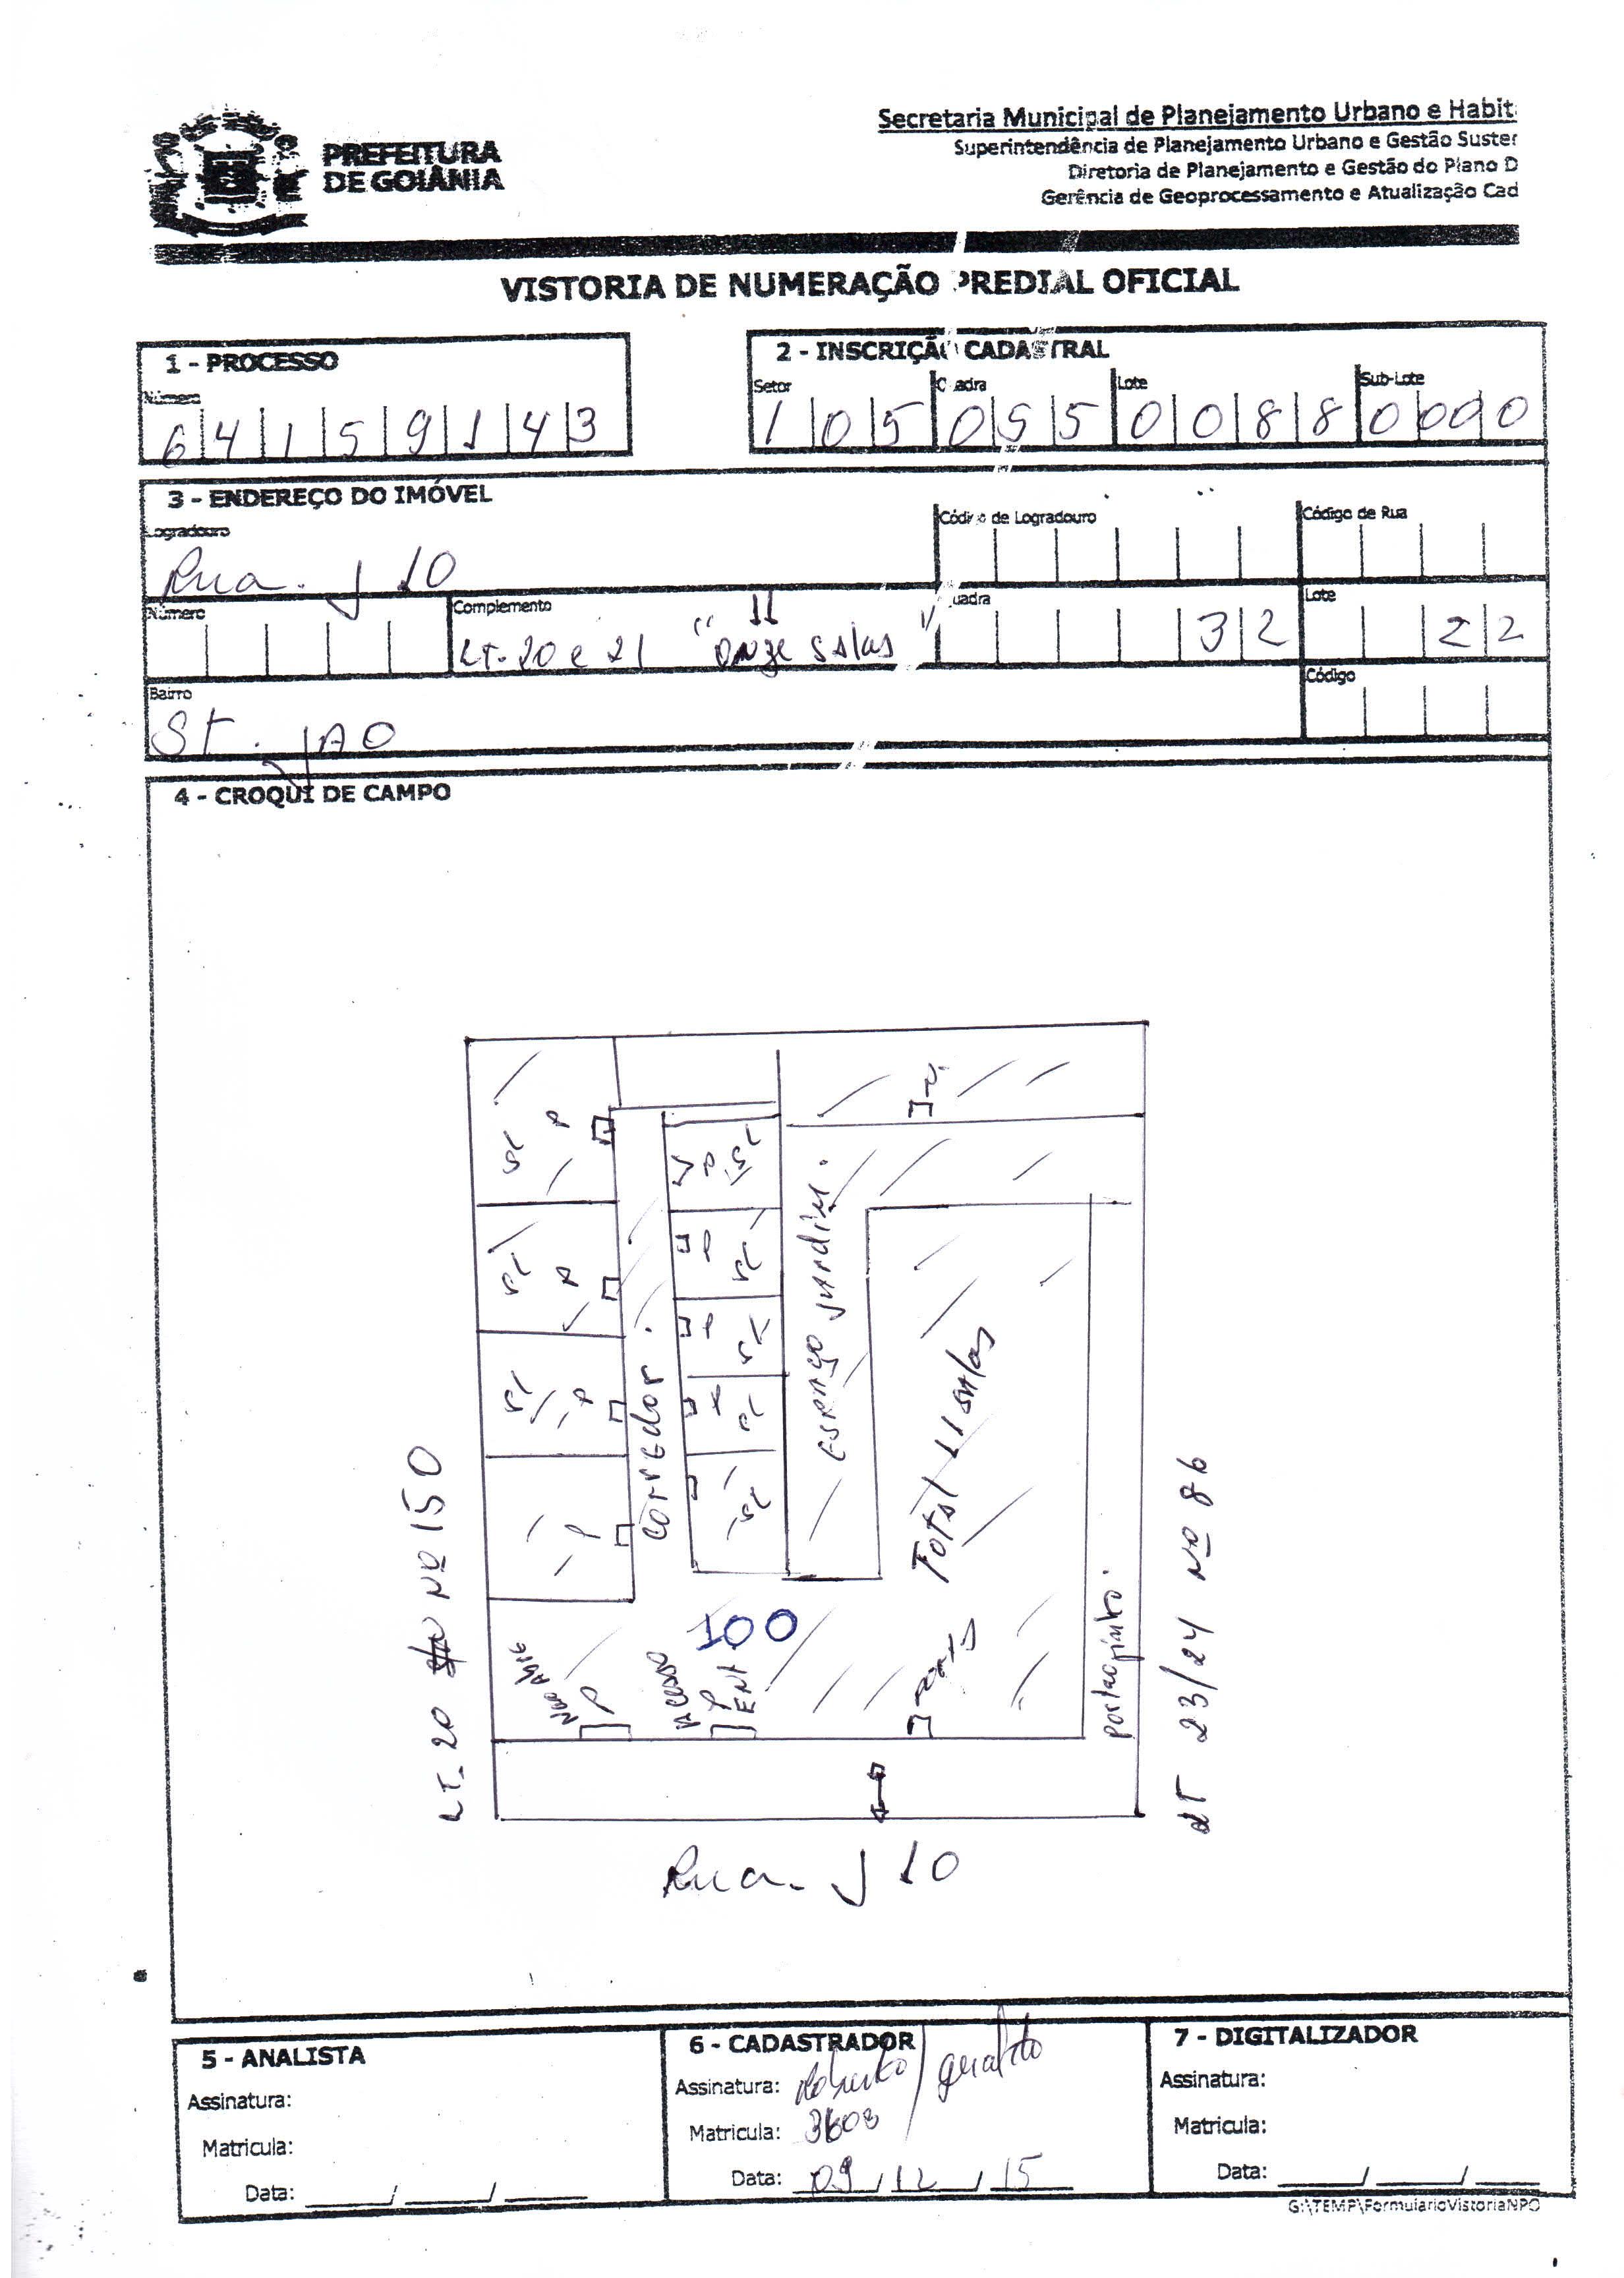 PREFEITURA
DE GOIÂNIA
Secretaria Municipal de Planejamento Urbano e Habit
Superintendência de Planejamento Urbano e Gestão Suster
Diretoria de Planejamento e Gestão do Plano D
Gerência de Geoprocessamento e Atualização Cad
VISTORIA DE NUMERAÇÃO PREDIAL OFICIAL
1 - PROCESSO
Número
6 4 1 5 9 1 4 3
2 - INSCRIÇÃO CADASTRAL
Setor Quadra Lote Sub-Lote
1 0 5 0 5 5 0 0 8 8 0 0 0 0
3 - ENDEREÇO DO IMÓVEL
Logradouro
Rua. J 10
Código de Logradouro
Código de Rua
Número
Complemento
11
LT- 20 e 21 "onze salas"
Quadra
3 2
Lote
2 2
Bairro
St. JAO
Código
4 - CROQUI DE CAMPO
SL P
SL P
SL P
P
corredor.
SL
SL
SL
SL
SL
ESPAÇO JARDIM.
Total 11 salas
LT- 20 Nº 150
LT 23/24 Nº 86
100
NÃO ABRE
P
ACESSO
P
ENT
Rua. J 10
5 - ANALISTA
Assinatura:
Matricula:
Data: ____/____/____
6 - CADASTRADOR
Assinatura: Roberto / Geraldo
Matricula: 3608
Data: 09/12/15
7 - DIGITALIZADOR
Assinatura:
Matricula:
Data: ____/____/____
G:\TEMP\FormularioVistoriaNPO